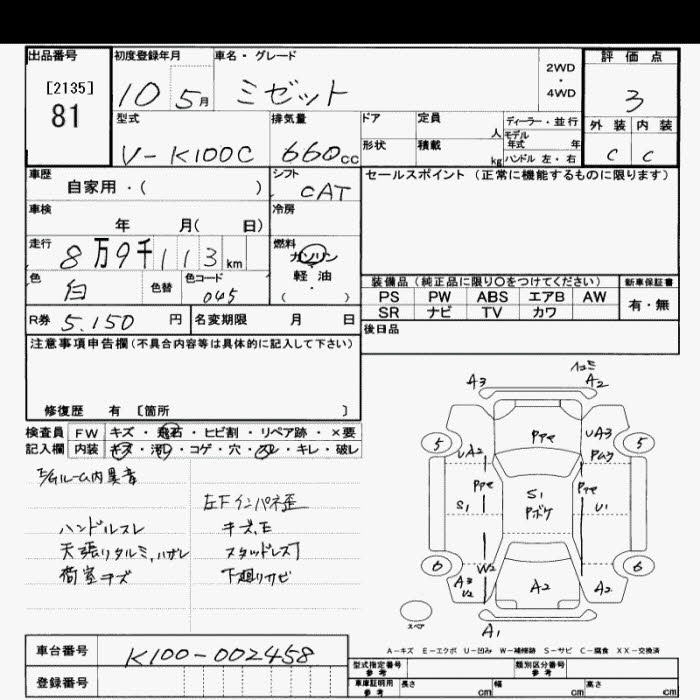 出品番号
[2135]
81
初度登録年月
10 5月
車名・グレード
ミゼット
2WD
・
4WD
評価点
3
外装 内装
C C
型式
V-K100C
排気量
660cc
ドア
定員
人
形状
積載
kg
ディーラー・並行
モデル
年式 年
ハンドル 左・右
車歴
自家用・( )
シフト
CAT
セールスポイント(正常に機能するものに限ります)
車検
年 月( 日)
冷房
走行
8万9千113km
燃料
ガソリン
・
軽油
( )
色
白
色替
色コード
045
装備品(純正品に限り〇をつけてください)
PS PW ABS エアB AW
SR ナビ TV カワ
新車保証書
有・無
R券 5,150 円
名変期限 月 日
後日品
注意事項申告欄(不具合内容等は具体的に記入して下さい)
修復歴 有 [箇所 ]
検査員 FW キズ・飛石・ヒビ割・リペア跡・×要
記入欄 内装 キズ・汚れ・コゲ・穴・スレ・キレ・破レ
ルーム内異音
左Fインパネ歪
ハンドルスレ
キズ、モ
天張りタルミ,ハガレ
スタッドレス
荷室キズ
下廻りサビ
A3
A2
5
UA2
UA3
5
S1
S1
Pボケ
U1
6
W2
A3
U2
A2
A2
6
スペア
A1
A-キズ E-エクボ U-凹み W-補修跡 S-サビ C-腐食 XX-交換済
車台番号
K100-002458
登録番号
型式指定番号
参考
類別区分番号
参考
車庫証明用
参考
長さ cm
幅 cm
高さ cm